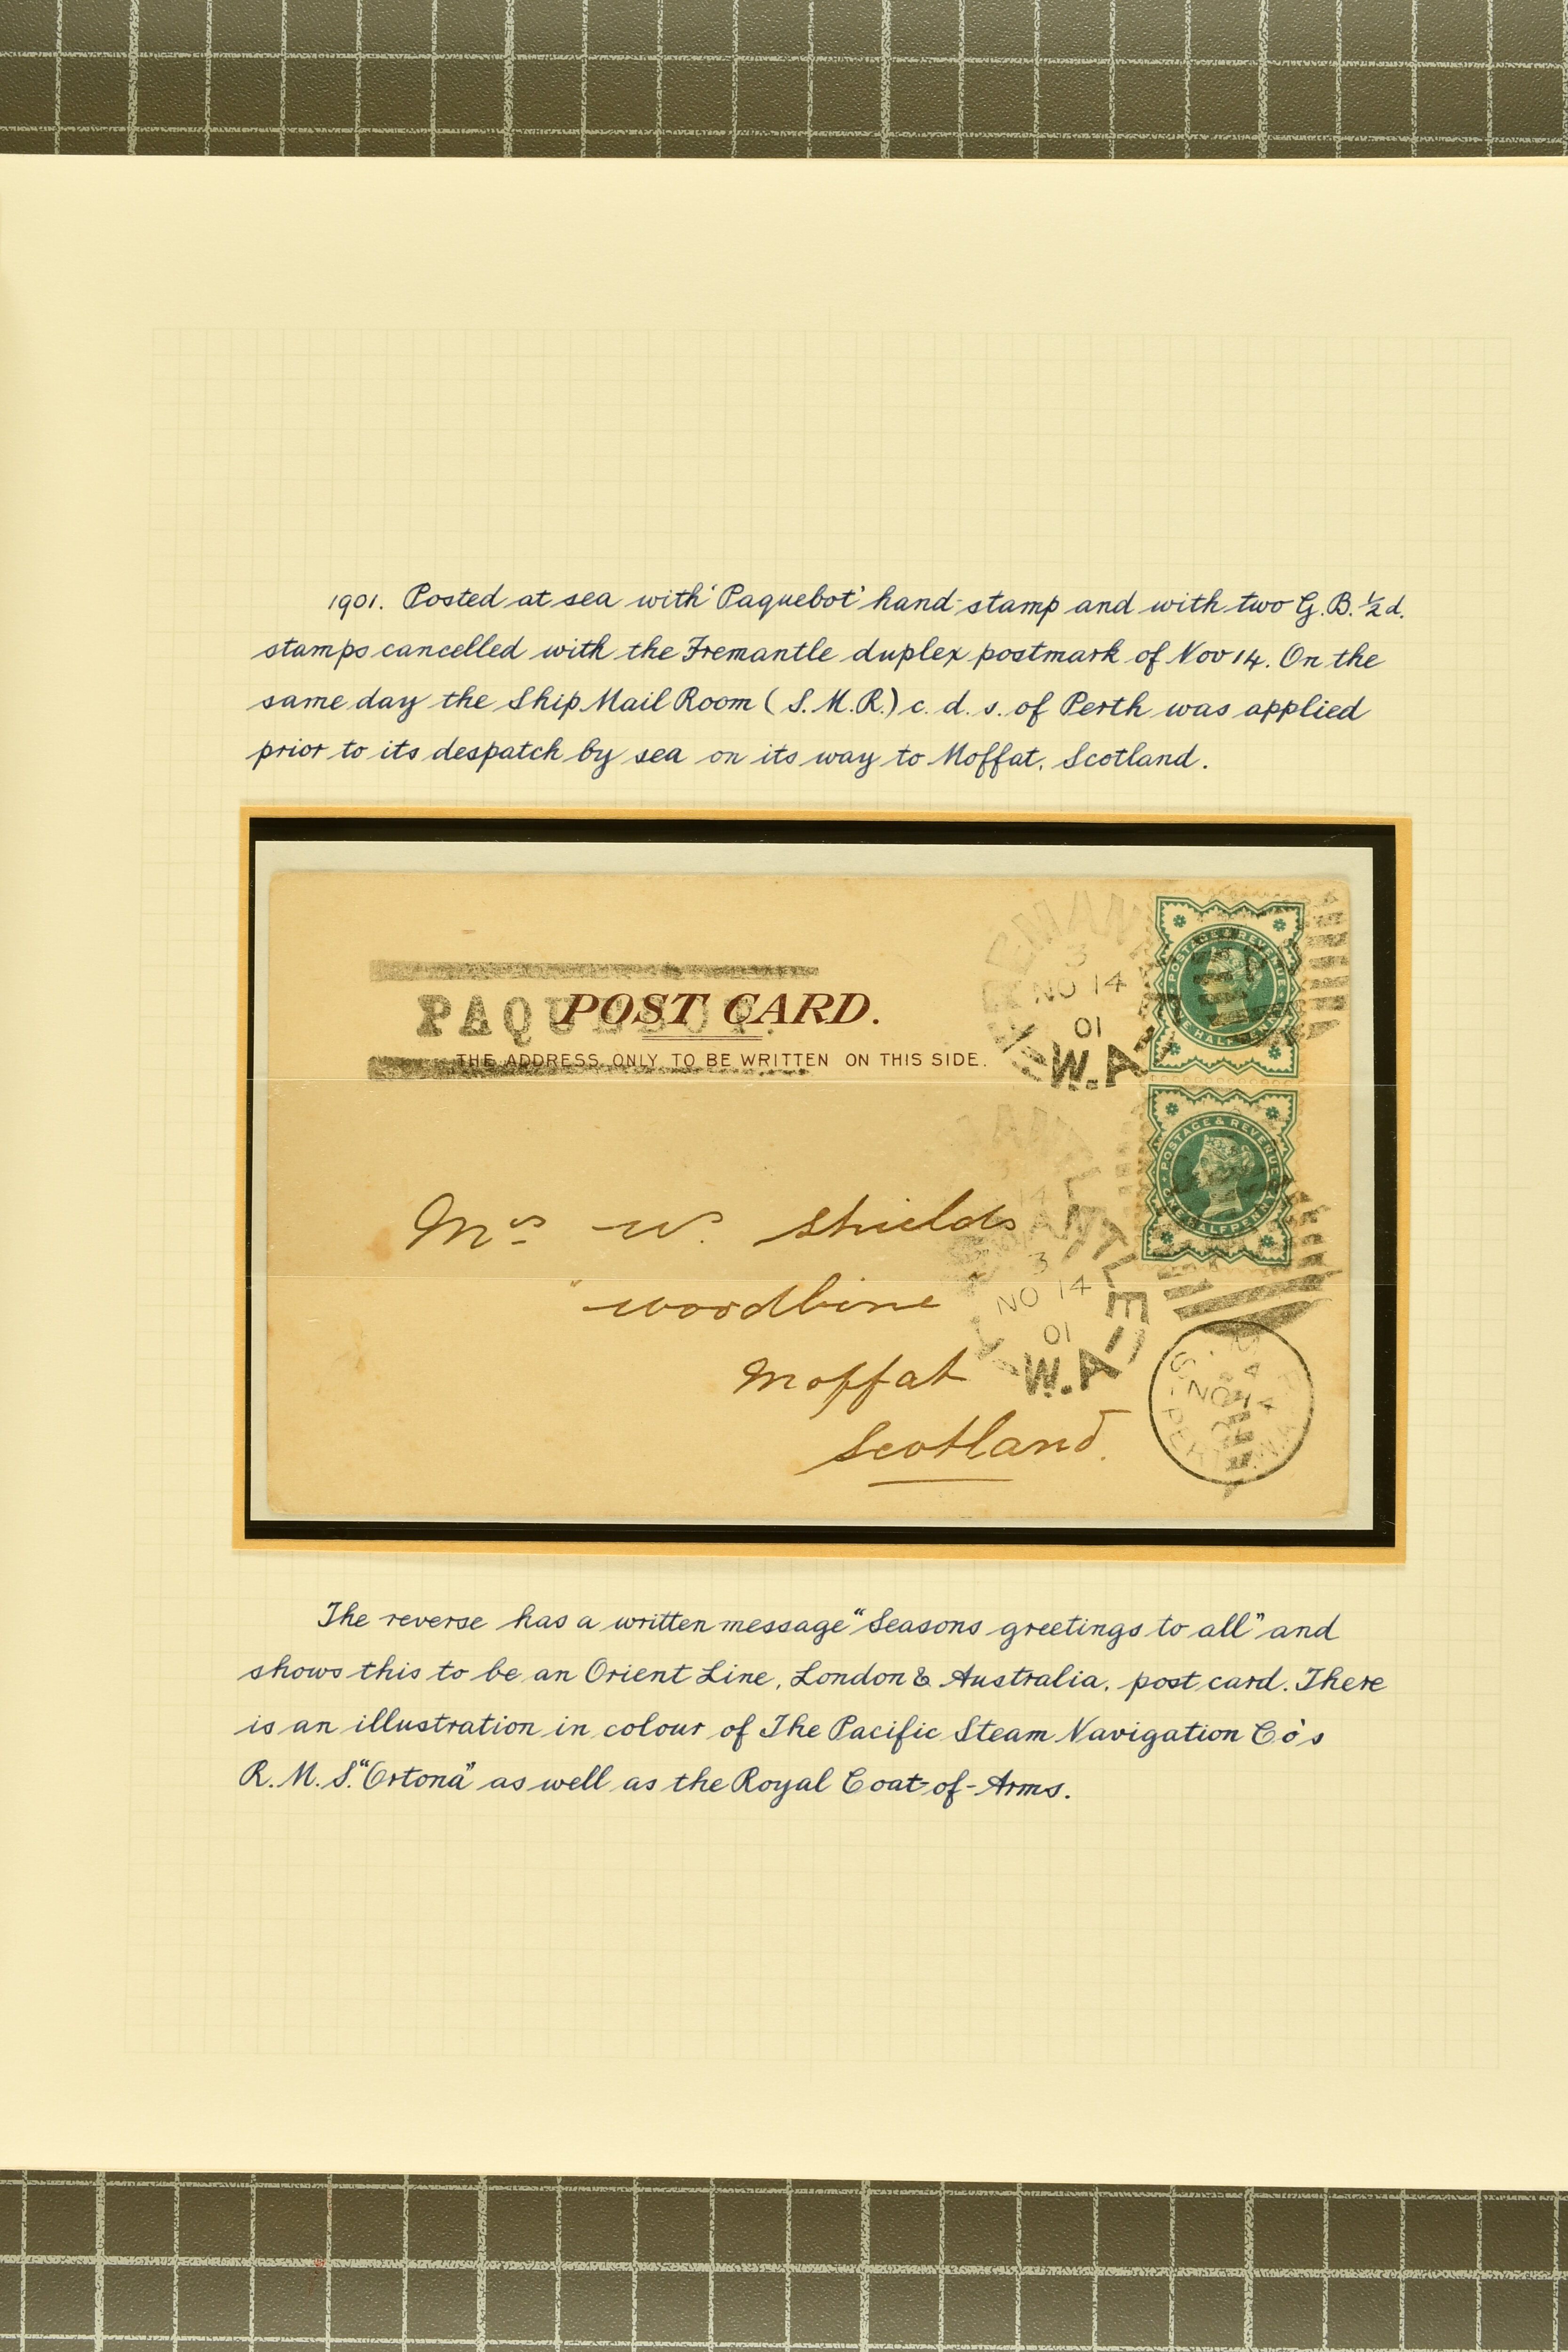 1901. Posted at sea with 'Paquebot' hand-stamp and with two G.B. ½d.
stamps cancelled with the Fremantle duplex postmark of Nov 14. On the
same day the Ship Mail Room (S.M.R.) c. d. s. of Perth was applied
prior to its despatch by sea on its way to Moffat, Scotland.
PAQU
POST CARD.
THE ADDRESS ONLY TO BE WRITTEN ON THIS SIDE.
3
NO 14
01
W.A
POSTAGE & REVENUE
POSTAGE & REVENUE
ONE HALFPENNY
Mrs W. Shields
"Woodbine
Moffat
Scotland.
3
NO 14
01
W.A
NO 14
The reverse has a written message "Seasons greetings to all" and
shows this to be an Orient Line, London & Australia, post card. There
is an illustration in colour of The Pacific Steam Navigation Co's
R.M.S. "Ortona" as well as the Royal Coat-of-Arms.